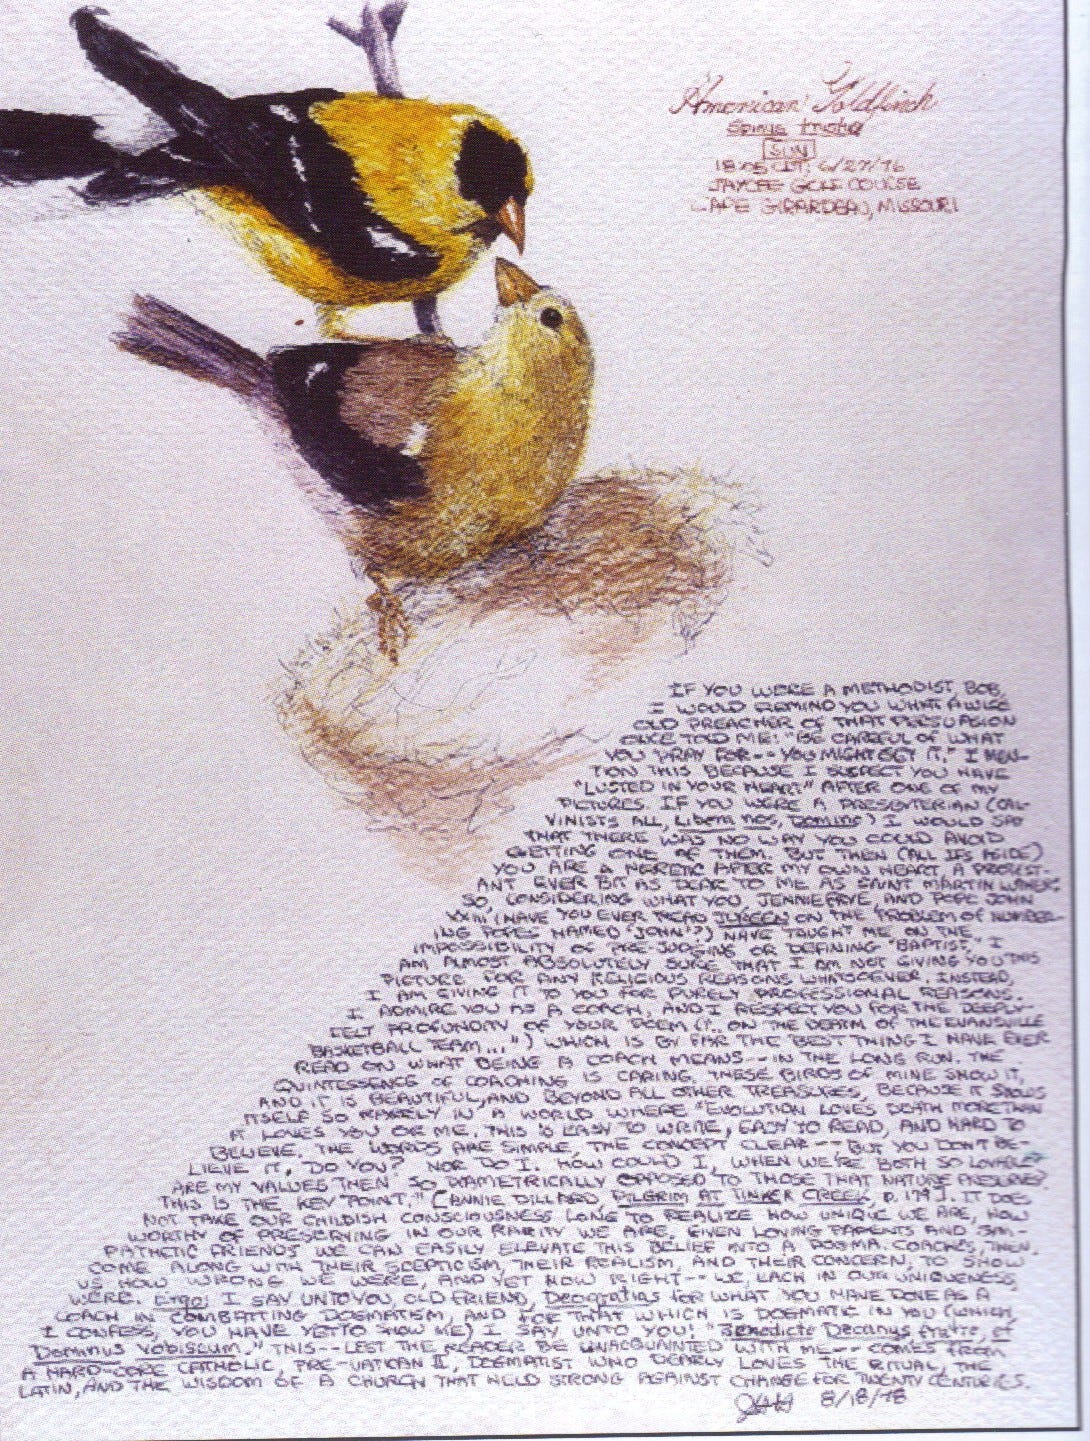 American Goldfinch
Spinus tristis
SUN
18:05 CDT, 6/27/76
JAYCEE GOLF COURSE
CAPE GIRARDEAU, MISSOURI
IF YOU WERE A METHODIST, BOB,
I WOULD REMIND YOU WHAT A WISE
OLD PREACHER OF THAT PERSUASION
ONCE TOLD ME: "BE CAREFUL OF WHAT
YOU PRAY FOR -- YOU MIGHT GET IT." I MEN-
TION THIS BECAUSE I SUSPECT YOU HAVE
"LUSTED IN YOUR HEART" AFTER ONE OF MY
PICTURES. IF YOU WERE A PRESBYTERIAN (CAL-
VINISTS ALL, Libera nos, Domine) I WOULD SAY
THAT THERE WAS NO WAY YOU COULD AVOID
GETTING ONE OF THEM. BUT THEN (ALL IFS ASIDE)
YOU ARE A HERETIC AFTER MY OWN HEART, A PROTEST-
ANT EVER BIT AS DEAR TO ME AS SAINT MARTIN LUTHER.
SO, CONSIDERING WHAT YOU, JENNIE FRYE, AND POPE JOHN
XXIII (HAVE YOU EVER READ ON THE PROBLEM OF NUMBER-
ING POPES NAMED "JOHN"?) HAVE TAUGHT ME ON THE
IMPOSSIBILITY OF PRE-JUDGING OR DEFINING "BAPTIST," I
AM ALMOST ABSOLUTELY SURE THAT I AM NOT GIVING YOU THIS
PICTURE FOR ANY RELIGIOUS REASONS WHATSOEVER. INSTEAD,
I AM GIVING IT TO YOU FOR PURELY PROFESSIONAL REASONS.
I ADMIRE YOU AS A COACH, AND I RESPECT YOU FOR THE DEEPLY-
FELT PROFUNDITY OF YOUR POEM (".. ON THE DEATH OF THE EVANSVILLE
BASKETBALL TEAM...") WHICH IS BY FAR THE BEST THING I HAVE EVER
READ ON WHAT BEING A COACH MEANS -- IN THE LONG RUN. THE
QUINTESSENCE OF COACHING IS CARING. THESE BIRDS OF MINE SHOW IT,
AND IT IS BEAUTIFUL, AND BEYOND ALL OTHER TREASURES, BECAUSE IT SHOWS
ITSELF SO RARELY IN A WORLD WHERE "EVOLUTION LOVES DEATH MORE THAN
IT LOVES YOU OR ME. THIS IS EASY TO WRITE, EASY TO READ, AND HARD TO
BELIEVE. THE WORDS ARE SIMPLE, THE CONCEPT CLEAR -- BUT YOU DON'T BE-
LIEVE IT, DO YOU? NOR DO I. HOW COULD I, WHEN WE'RE BOTH SO LOVABLE?
ARE MY VALUES THEN SO DIAMETRICALLY OPPOSED TO THOSE THAT NATURE PRESERVES?
THIS IS THE KEY POINT." (ANNIE DILLARD PILGRIM AT TINKER CREEK, p. 179). IT DOES
NOT TAKE OUR CHILDISH CONSCIOUSNESS LONG TO REALIZE HOW UNIQUE WE ARE, HOW
WORTHY OF PRESERVING IN OUR RARITY WE ARE. GIVEN LOVING PARENTS AND SYM-
PATHETIC FRIENDS WE CAN EASILY ELEVATE THIS BELIEF INTO A DOGMA. COACHES, THEN,
COME ALONG WITH THEIR SCEPTICISM, THEIR REALISM, AND THEIR CONCERN, TO SHOW
US HOW WRONG WE WERE, AND YET HOW RIGHT -- WE, EACH IN OUR UNIQUENESS,
WERE. Ergo! I SAY UNTO YOU, OLD FRIEND, Deo gratias FOR WHAT YOU HAVE DONE AS A
COACH IN COMBATTING DOGMATISM, AND FOR THAT WHICH IS DOGMATIC IN YOU (WHICH,
I CONFESS, YOU HAVE YET TO SHOW ME) I SAY UNTO YOU! "Benedicte Decanus, frater, et
Dominus vobiscum." THIS -- LEST THE READER BE UNACQUAINTED WITH ME -- COMES FROM
A HARD-CORE CATHOLIC, PRE-VATICAN II, DOGMATIST WHO DEARLY LOVES THE RITUAL, THE
LATIN, AND THE WISDOM OF A CHURCH THAT HELD STRONG AGAINST CHANGE FOR TWENTY CENTURIES.
8/18/78